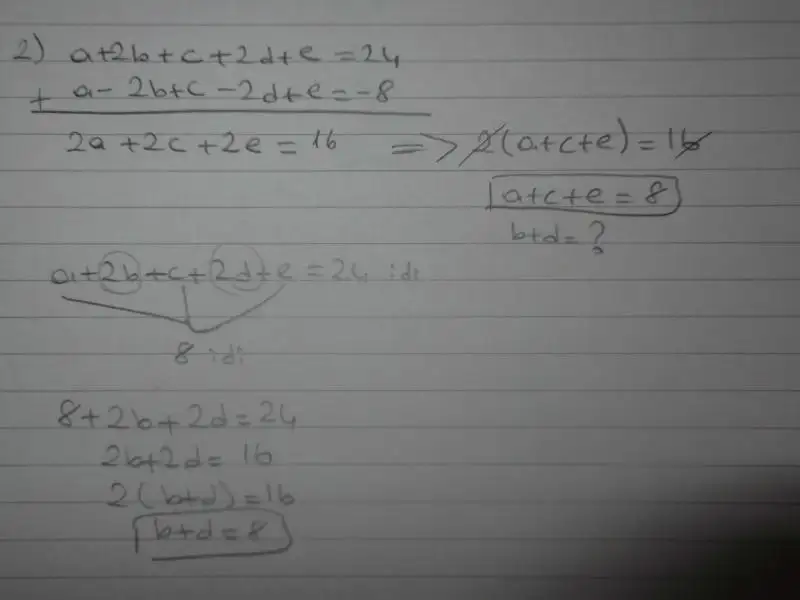 2) a+2b+c+2d+e=24
+ a-2b+c-2d+e=-8
2a+2c+2e=16 => 2(a+c+e)=16
a+c+e=8
b+d=?
a+2b+c+2d+e=24 idi
8 idi
8+2b+2d=24
2b+2d=16
2(b+d)=16
b+d=8